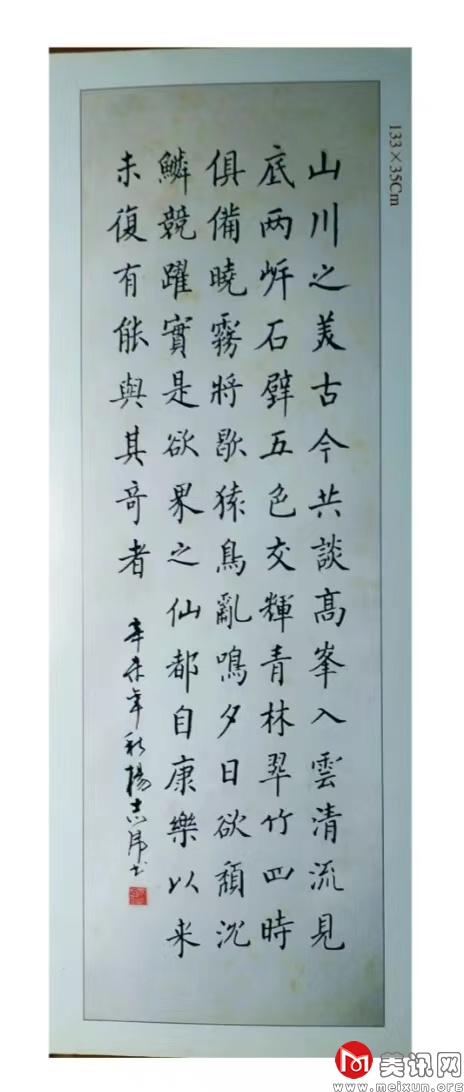 133×35Cm
山川之美古今共談高峯入雲清流見
底两岸石壁五色交輝青林翠竹四時
俱備曉霧將歇猿鳥亂鳴夕日欲頹沉
鱗競躍實是欲界之仙都自康樂以来
未復有能與其奇者
辛未年秋楊志书
美讯网
www.meixun.org